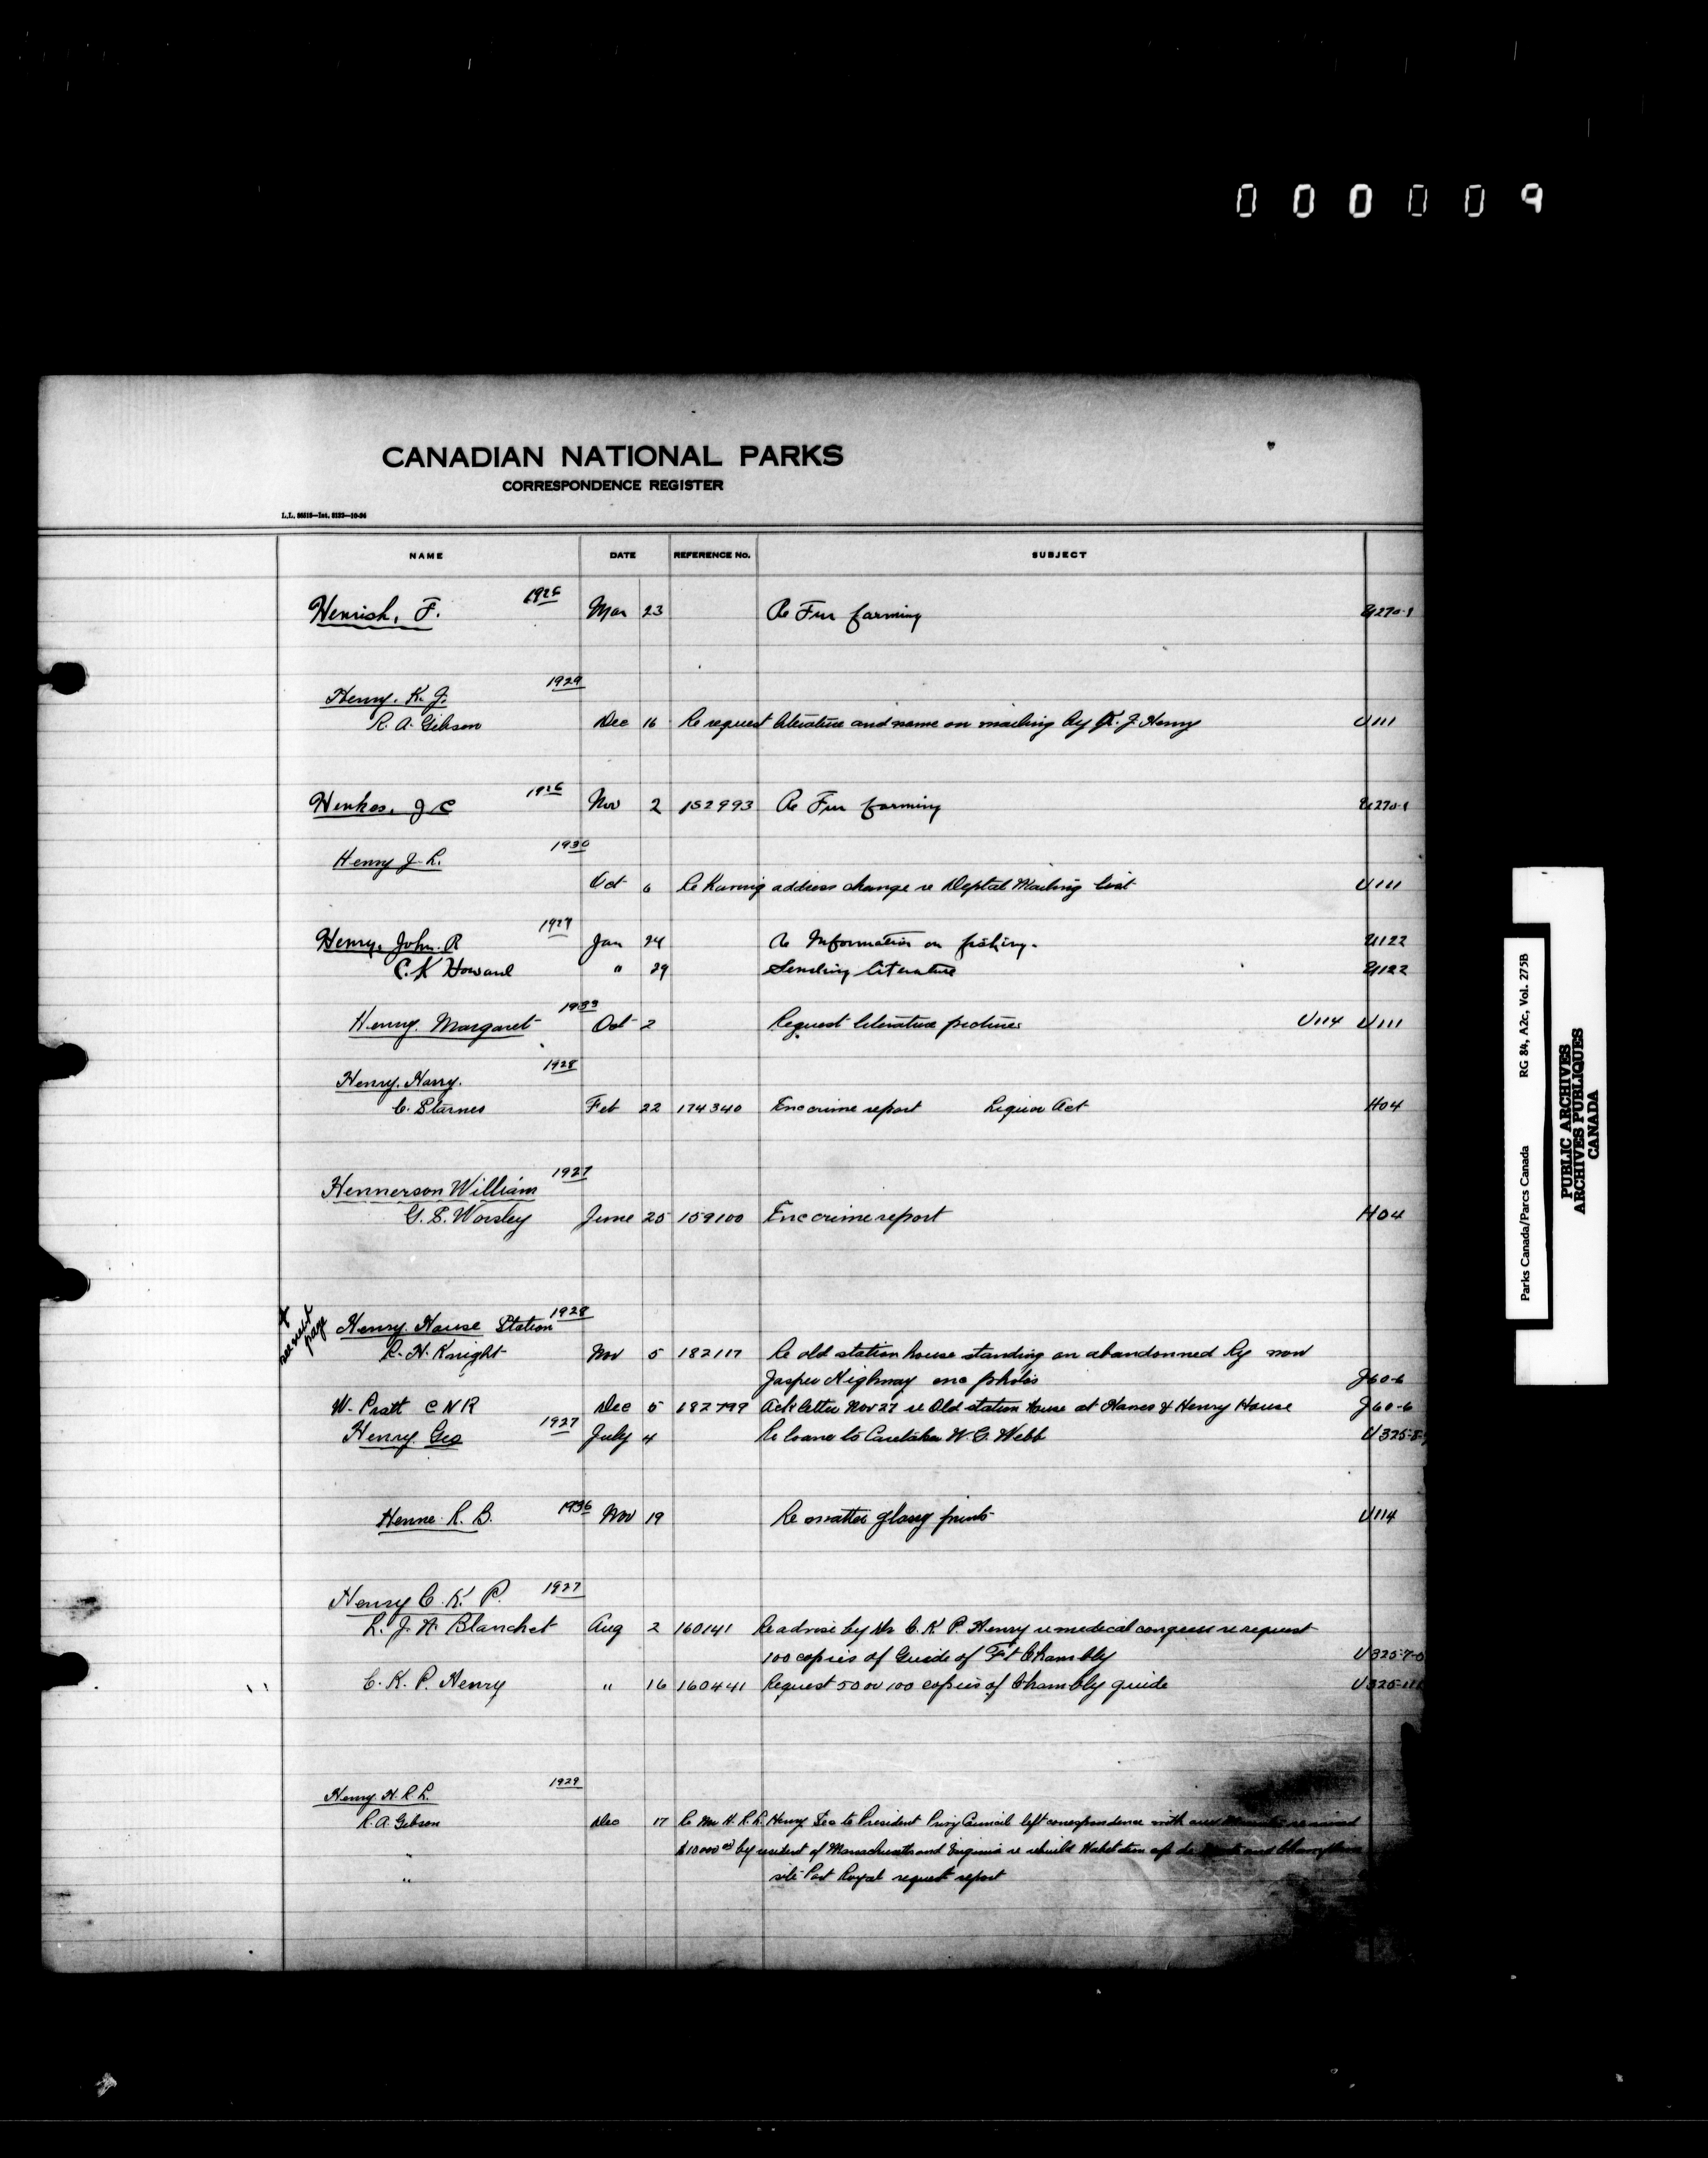 000009
CANADIAN NATIONAL PARKS
CORRESPONDENCE REGISTER
NAME DATE REFERENCE No. SUBJECT
Henrish, F. 1926 Mar 23 Re Fur farming U270-1
Henry. K. J. 1929
R. A. Gibson Dec 16 Re request literature and name on mailing by K. J. Henry U111
Henkes, J C 1926 Nov 2 152993 Re Fur farming U270-1
Henry J. L. 1930
Oct 6 Re having address change re Deptal Mailing list U111
Henry, John. R 1927 Jan 24 Re Information on fishing. U122
C. K Howard " 29 Sending literature U122
Henry. Margaret 1933 Oct 2 Request literature pictures U114 U111
Henry. Harry. 1928
C. Starnes Feb 22 174340 Enc crime report Liquor Act H04
Hennerson William 1927
G. S. Worsley June 25 159100 Enc crime report H04
see next page
Henry. House Station 1928
R. H. Knight Nov 5 182117 Re old station house standing on abandonned Ry now
Jasper Highway enc photos J60-6
W. Pratt C N R Dec 5 182799 Ack letter Nov 27 re Old station house at Hanes & Henry House J60-6
Henry. Geo 1927 July 4 Re loans to Caretaker W. G. Webb U325-
Henne. R. B. 1936 Nov 19 Re mattes glossy prints U114
Henry C. K. P. 1927
L. J. A Blanchet Aug 2 160141 Re advise by Dr C. K. P. Henry re medical congress re request
100 copies of Guide of Ft Chambly U325-7-0
C. K. P. Henry " 16 160441 Request 50 or 100 copies of Chambly guide U325-
Henry. H. R. L. 1929
R. A. Gibson Dec 17 Re Mr H. R. L. Henry Sec to President Privy Council left correspondence with
" $10000.00 by resident of Massachusetts and Virginia re rebuild Habitation of de and
" site Port Royal request report
Parks Canada/Parcs Canada RG 84, A2c, Vol. 275B
PUBLIC ARCHIVES
ARCHIVES PUBLIQUES
CANADA